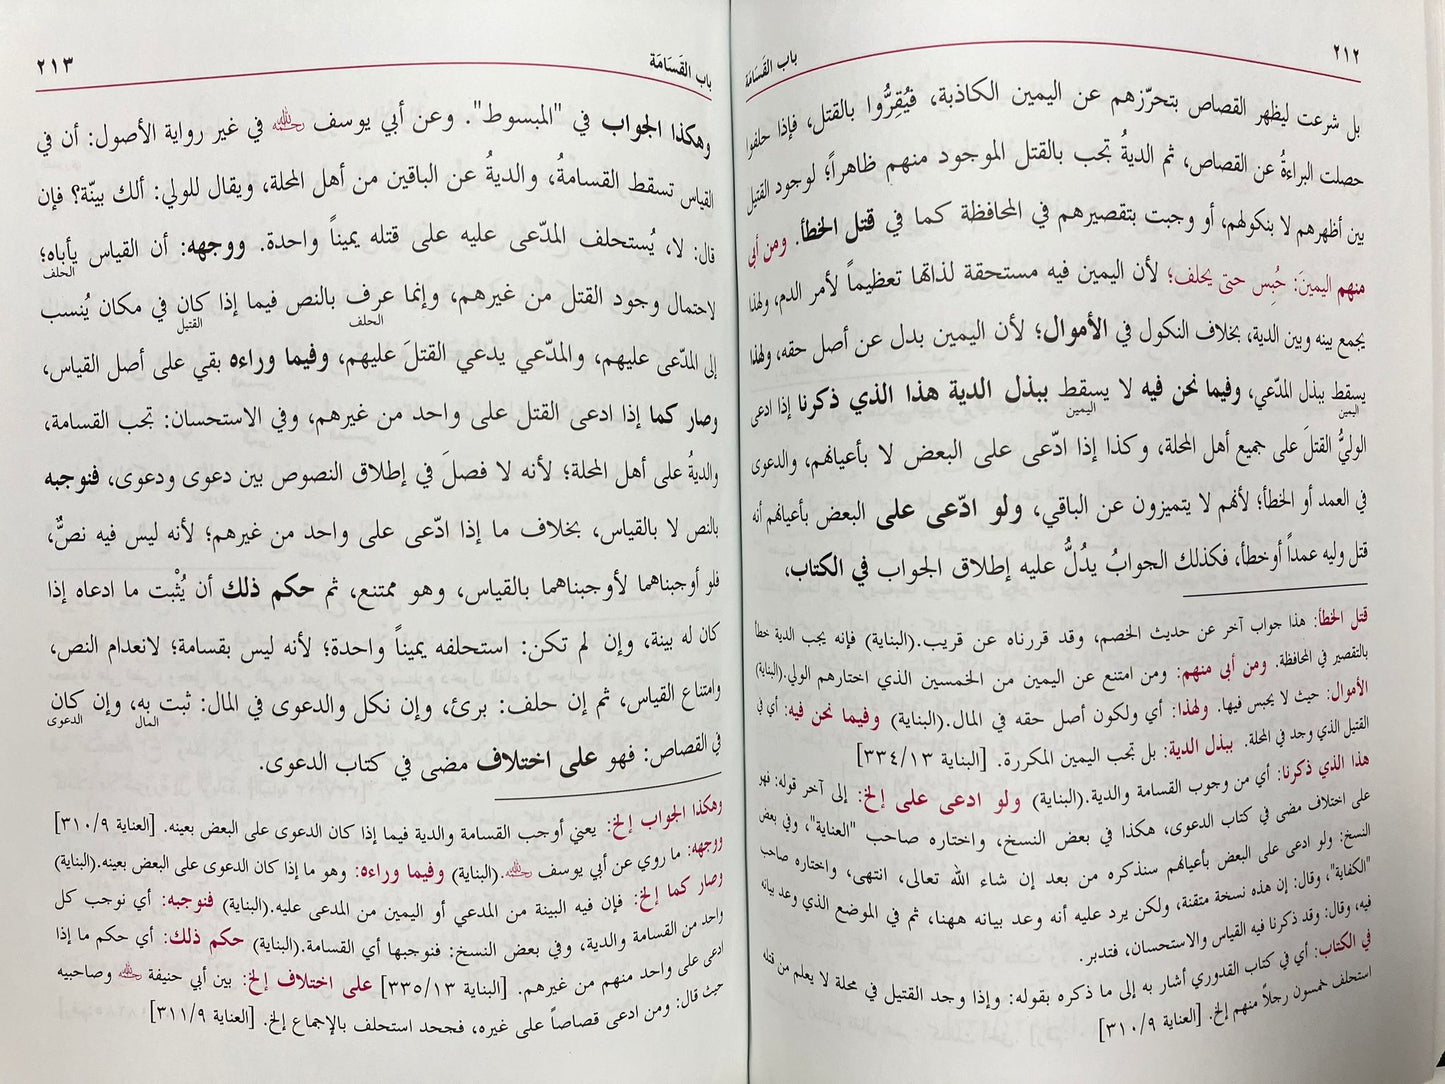 ٢١٢
باب القَسَامَة
بل شرعت ليظهر القصاص بتحرّزهم عن اليمين الكاذبة، فيُقِرُّوا بالقتل، فإذا حلفوا
حصلت البراءةُ عن القصاص، ثم الديةُ تجب بالقتل الموجود منهم ظاهراً؛ لوجود القتيل
بين أظهرهم لا بنكولهم، أو وجبت بتقصيرهم في المحافظة كما في قتل الخطأ. ومن أبى
منهم اليمينَ: حُبِس حتى يحلف؛ لأن اليمين فيه مستحقة لذاتها تعظيماً لأمر الدم، ولهذا
يجمع بينه وبين الدية، بخلاف النكول في الأموال؛ لأن اليمين بدل عن أصل حقه، ولهذا
يسقط ببذل المدّعي، وفيما نحن فيه لا يسقط ببذل الدية هذا الذي ذكرنا إذا ادعى
اليمين اليمين
الوليُّ القتلَ على جميع أهل المحلة، وكذا إذا ادّعى على البعض لا بأعيانهم، والدعوى
في العمد أو الخطأ؛ لأنهم لا يتميزون عن الباقي، ولو ادّعى على البعض بأعيانهم أنه
قتل وليه عمداً أوخطأ، فكذلك الجوابُ يدُلُّ عليه إطلاق الجواب في الكتاب،
قتل الخطأ: هذا جواب آخر عن حديث الخصم، وقد قررناه عن قريب.(البناية) فإنه يجب الدية خطأ
بالتقصير في المحافظة. ومن أبى منهم: ومن امتنع عن اليمين من الخمسين الذي اختارهم الولي.(البناية)
الأموال: حيث لا يحبس فيها. ولهذا: أي ولكون أصل حقه في المال.(البناية) وفيما نحن فيه: أي في
القتيل الذي وجد في المحلة. ببذل الدية: بل تجب اليمين المكررة. [البناية ٣٣٤/١٣]
هذا الذي ذكرنا: أي من وجوب القسامة والدية.(البناية) ولو ادعى على إلخ: إلى آخر قوله: فهو
على اختلاف مضى في كتاب الدعوى، هكذا في بعض النسخ، واختاره صاحب "العناية"، وفي بعض
النسخ: ولو ادعى على البعض بأعيانهم سنذكره من بعد إن شاء الله تعالى، انتهى، واختاره صاحب
"الكفاية"، وقال: إن هذه نسخة متقنة، ولكن يرد عليه أنه وعد بيانه ههنا، ثم في الموضع الذي وعد بيانه
فيه، وقال: وقد ذكرنا فيه القياس والاستحسان، فتدبر.
في الكتاب: أي في كتاب القدوري أشار به إلى ما ذكره بقوله: وإذا وجد القتيل في محلة لا يعلم من قتله
استحلف خمسون رجلاً منهم إلخ. [العناية ٣١٠/٩]
باب القَسَامَة
٢١٣
وهكذا الجواب في "المبسوط". وعن أبي يوسف رحمه الله في غير رواية الأصول: أن في
القياس تسقط القسامةُ، والديةُ عن الباقين من أهل المحلة، ويقال للولي: ألك بيّنة؟ فإن
قال: لا، يُستحلف المدّعى عليه على قتله يميناً واحدة. ووجهه: أن القياس يأباه؛
الحلف
لاحتمال وجود القتل من غيرهم، وإنما عرف بالنص فيما إذا كان في مكان يُنسب
الحلف القتيل
إلى المدّعى عليهم، والمدّعي يدعي القتلَ عليهم، وفيما وراءه بقي على أصل القياس،
وصار كما إذا ادعى القتل على واحد من غيرهم، وفي الاستحسان: تجب القسامة،
والديةُ على أهل المحلة؛ لأنه لا فصلَ في إطلاق النصوص بين دعوى ودعوى، فنوجبه
بالنص لا بالقياس، بخلاف ما إذا ادّعى على واحد من غيرهم؛ لأنه ليس فيه نصٌّ،
فلو أوجبناهما لأوجبناهما بالقياس، وهو ممتنع، ثم حكم ذلك أن يُثْبت ما ادعاه إذا
كان له بينة، وإن لم تكن: استحلفه يميناً واحدة؛ لأنه ليس بقسامة؛ لانعدام النص،
وامتناع القياس، ثم إن حلف: برئ، وإن نكل والدعوى في المال: ثبت به، وإن كان
المال الدعوى
في القصاص: فهو على اختلاف مضى في كتاب الدعوى.
وهكذا الجواب إلخ: يعني أوجب القسامة والدية فيما إذا كان الدعوى على البعض بعينه. [العناية ٣١٠/٩]
ووجهه: ما روي عن أبي يوسف رحمه الله.(البناية) وفيما وراءه: وهو ما إذا كان الدعوى على البعض بعينه.(البناية)
وصار كما إلخ: فإن فيه البينة من المدعي أو اليمين من المدعى عليه.(البناية) فنوجبه: أي نوجب كل
واحد من القسامة والدية، وفي بعض النسخ: فنوجبها أي القسامة.(البناية) حكم ذلك: أي حكم ما إذا
ادعى على واحد منهم من غيرهم. [البناية ٣٣٥/١٣] على اختلاف إلخ: بين أبي حنيفة رحمه الله وصاحبيه
حيث قال: ومن ادعى قصاصاً على غيره، فجحد استحلف بالإجماع إلخ. [العناية ٣١١/٩]